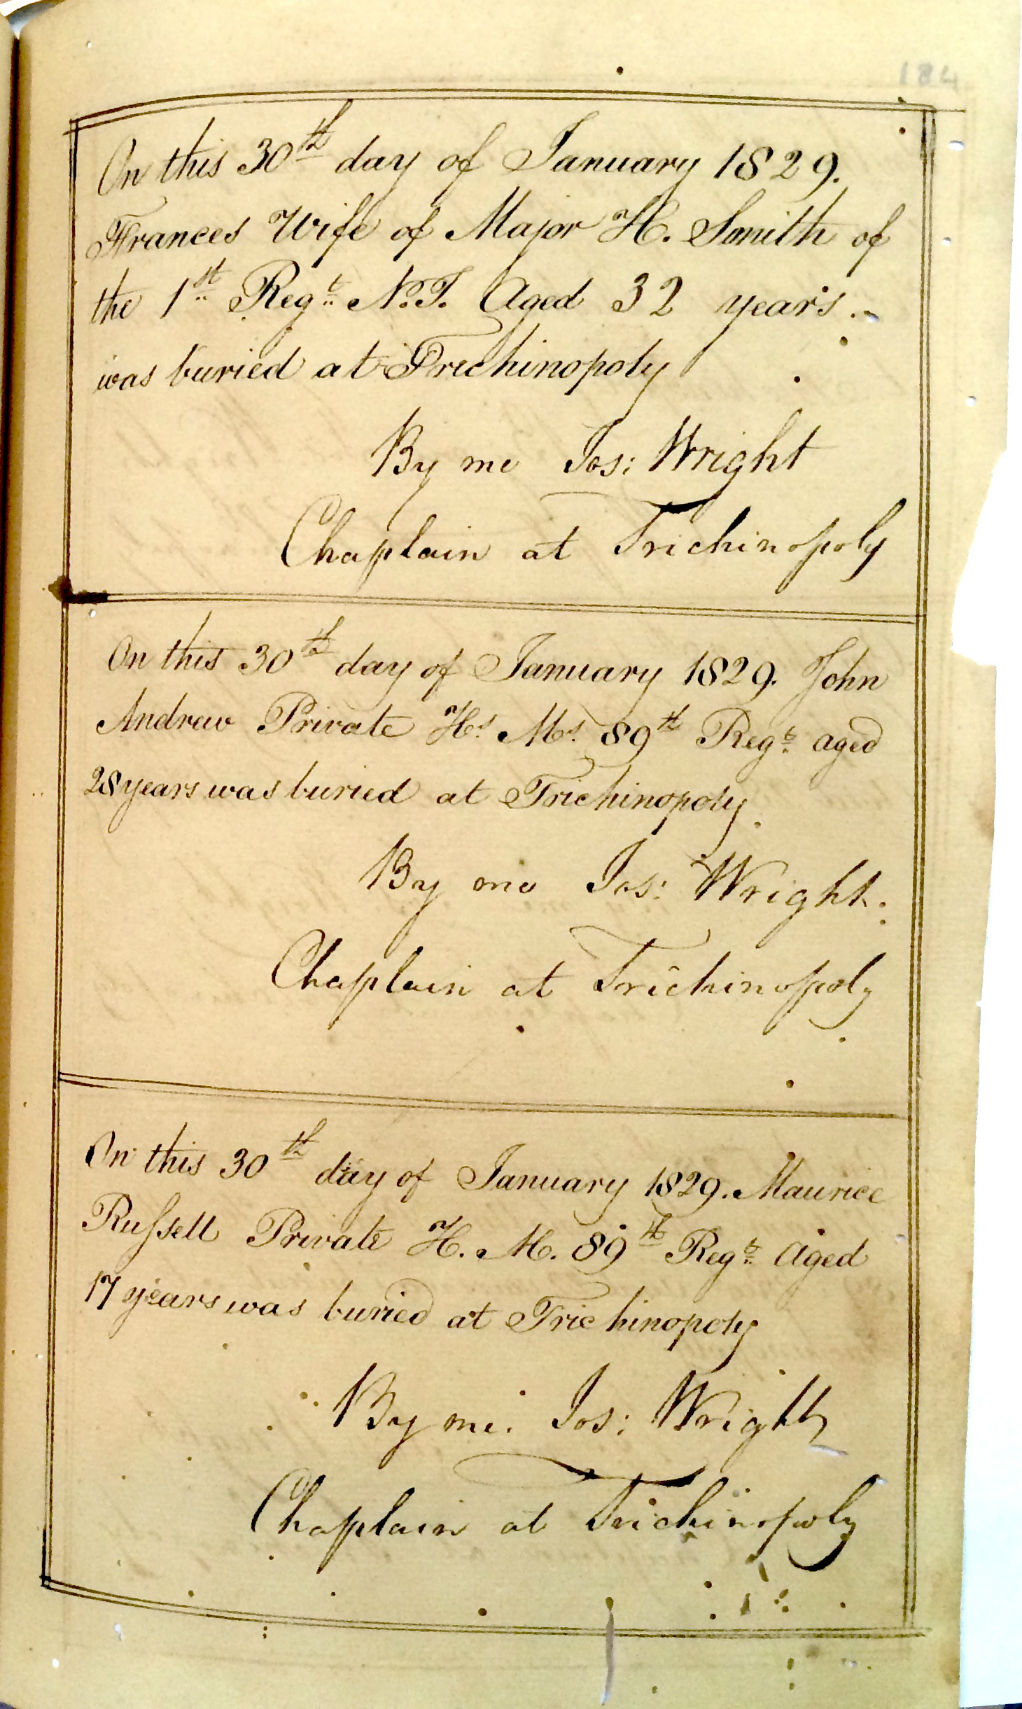 184
On this 30th day of January 1829.
Frances Wife of Major H. Smith of
the 1st Regt. N.I. Aged 32 years.
was buried at Trichinopoly
By me Jos: Wright
Chaplain at Trichinopoly
On this 30th day of January 1829. John
Andrew Private Hs. Ms. 89th Regt. aged
28 years was buried at Trichinopoly.
By me Jos: Wright.
Chaplain at Trichinopoly
On this 30th day of January 1829. Maurice
Russell Private H. M. 89th Regt. Aged
17 years was buried at Trichinopoly
By me. Jos: Wright
Chaplain at Trichinopoly